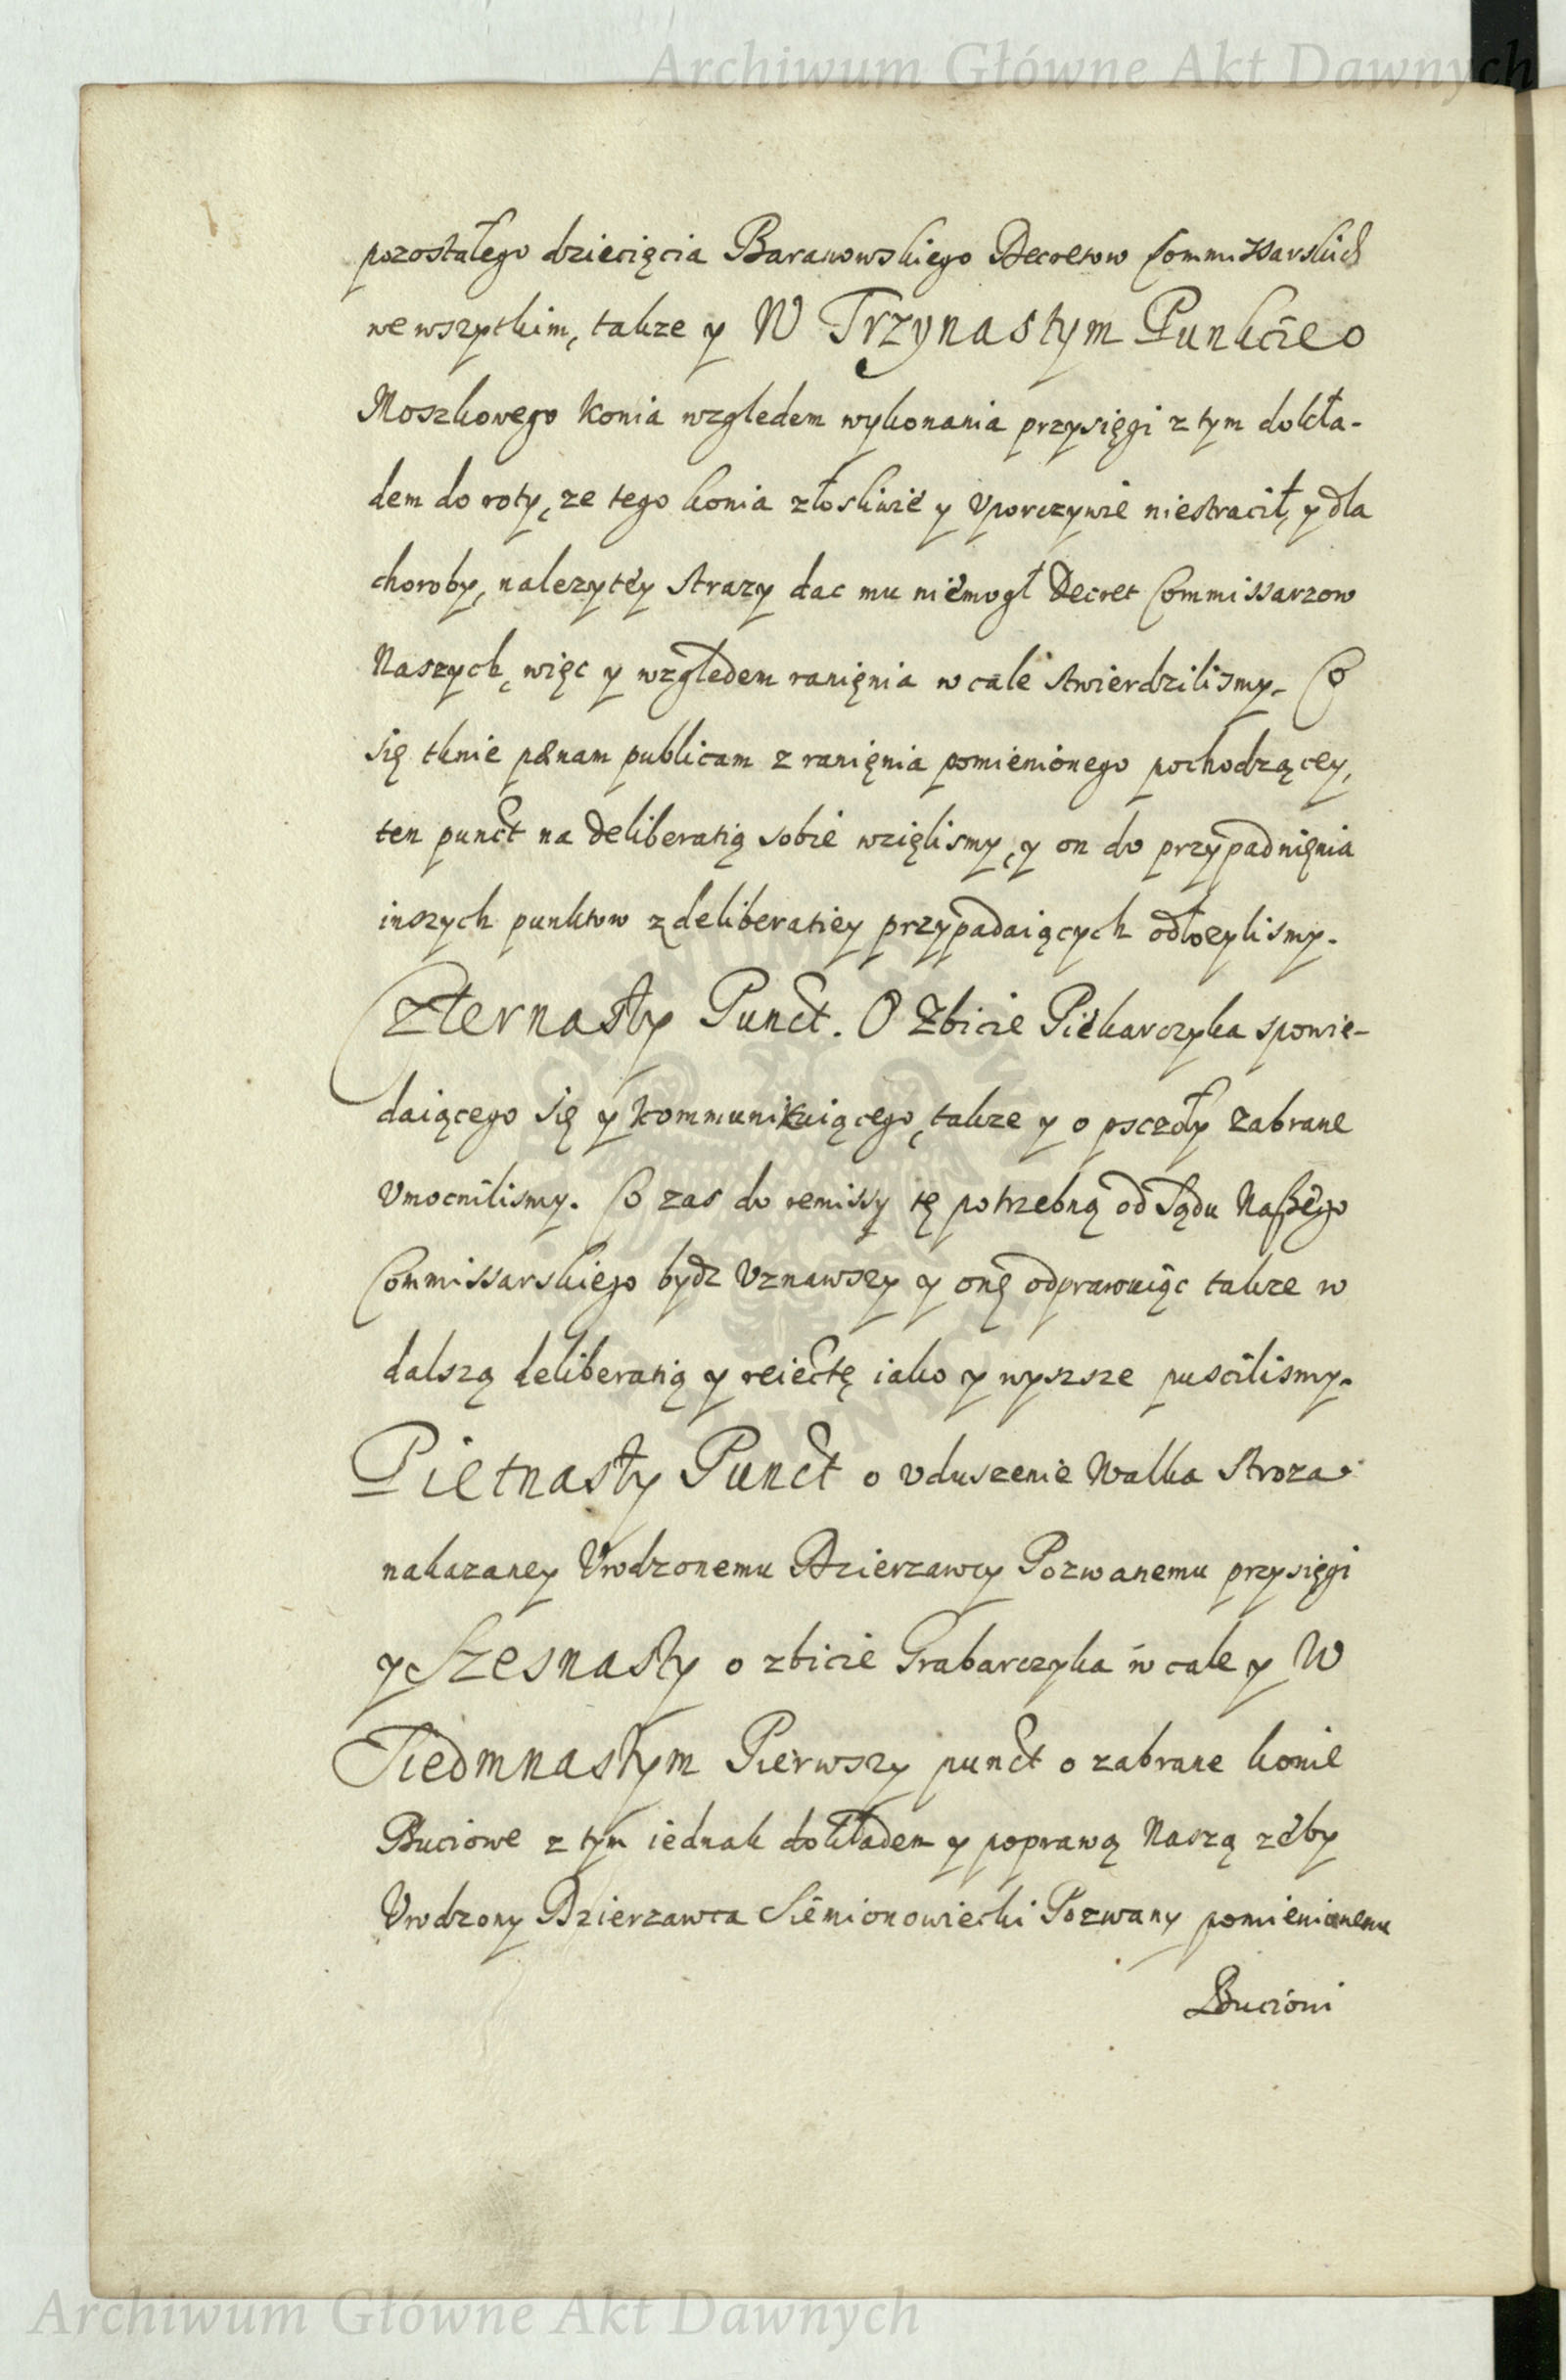 Archiwum Główne Akt Dawnych
pozostałego dziecięcia Baranowskiego Decretow Commissarskich
we wszytkim, takze y W Trzynastym Punkcie o
Moszkowego Konia względem wykonania przysięgi z tym dokła-
dem do roty, ze tego konia złosliwie y Vporczywie niestracił, y dla
choroby, nalezytey strazy dac mu niemogł Decret Commissarzow
Naszych, więc y względem ranięnia w cale stwierdzilismy. Co
się tknie pænam publicam z ranięnia pomienionego pochodzącey,
ten punct na deliberatią sobie wzięlismy, y on do przypadnięnia
inszych punktow z deliberatiey przypadaiących odłozylismy.
Czternasty Punct. O Zbicie Piekarczyka spowie-
daiącego się y kommunikuiącego, takze y o psczoły zabrane
Vmocnilismy. Co zas do remissy tę potrzebną od Sądu Naszego
Commissarskiego bydz Vznawszy y onę odprawuiąc takze w
dalszą deliberatią y reiectę iako y wyszsze puscilismy.
Pietnasty Punct o vduszenie Walka Stroza
nakazaney Vrodzonemu Dzierzawcy Pozwanemu przysięgi
y Szesnasty o zbicie Grabarczyka w cale y W
Siedmnastym Pierwszy punct o zabrane konie
Buciowe z tym iednak dokładem y poprawą Naszą zeby
Vrodzony Dzierzawca Siemionowiecki Pozwany pomienionemu
Buciowi
Archiwum Główne Akt Dawnych